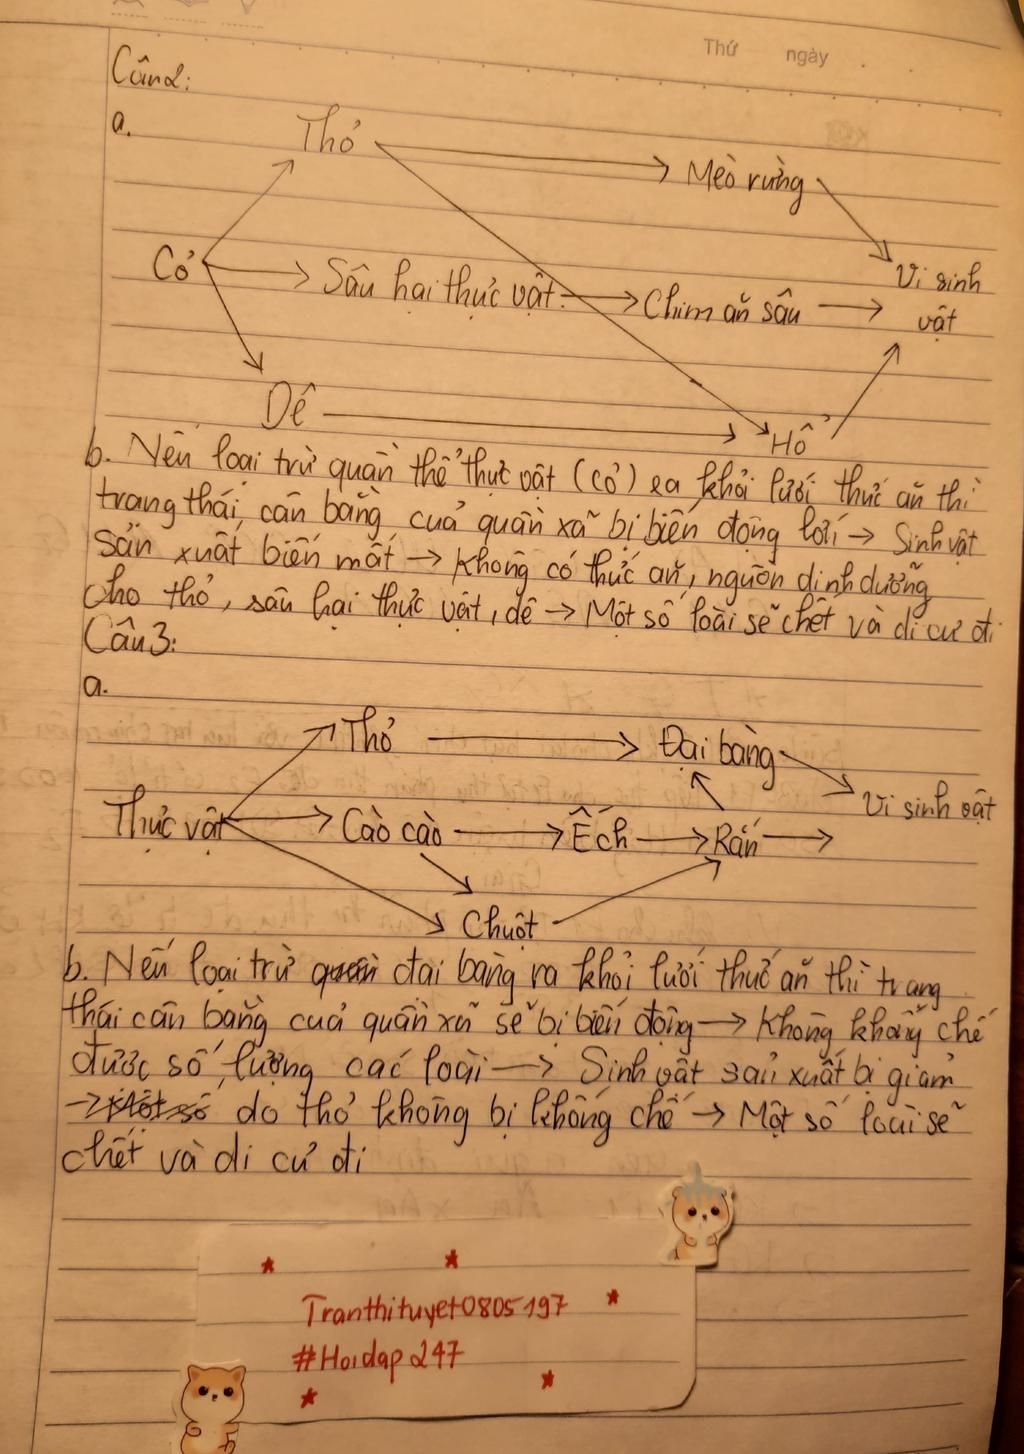 Thứ ngày
Câu2:
a.
Thỏ
Mèo rừng
Cỏ
Sâu hại thực vật
Chim ăn sâu
Vi sinh
vật
Dê
Hổ
b. Nếu loại trừ quần thể thực vật (cỏ) ra khỏi lưới thức ăn thì
trạng thái cân bằng của quần xã bị biến động lới → Sinh vật
sản xuất biến mất → Không có thức ăn, nguồn dinh dưỡng
cho thỏ, sâu hại thực vật, dê → Một số loài sẽ chết và di cư đi
Câu3:
a.
Thỏ
Đại bàng
Thực vật
Cào cào
Ếch
Rắn
Vi sinh vật
Chuột
b. Nếu loại trừ quần đại bàng ra khỏi lưới thức ăn thì trạng
thái cân bằng của quần xã sẽ bị biến động → Không khống chế
được số lượng các loài → Sinh vật sản xuất bị giảm
→ Một số do thỏ không bị khống chế → Một số loài sẽ
chết và di cư đi
Tranthituyet0805197
#Hoidap247